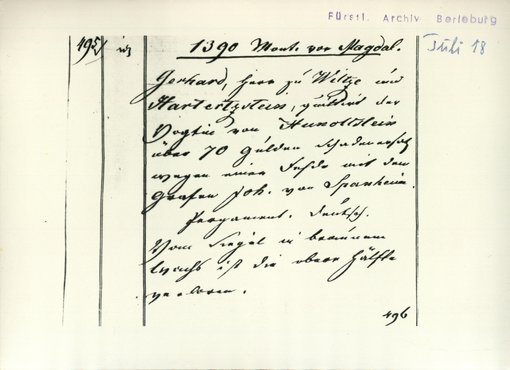 Fürstl. Archiv Berleburg
Juli 18
195
1390 Mont. vor Magdal.
Gerhard, Herr zu Wiltze und
Hartertzstein, quittirt der
Vogtin von Hunoltstein
über 70 Gulden Schadenersatz
wegen einer Fehde mit dem
Grafen Joh. von Spanheim.
Pergament. Deutsch.
Vom Siegel in braunem
Wachs ist die obere Hälfte
verloren.
496